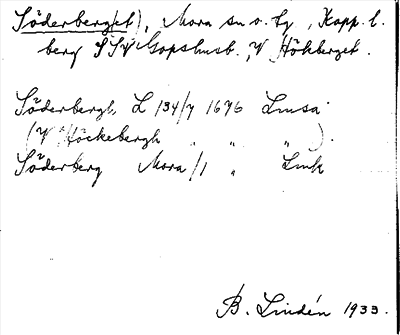 Söderberg(et), Mora sn o. tg, Kopp. l.
berg SSV Gopshusb., V Hökberget.
Söderbergh, L 134/7 1676 Lmsa
(V Höckebergh " " ").
Söderberg Mora/1 " Lmk
B. Lindén 1933.